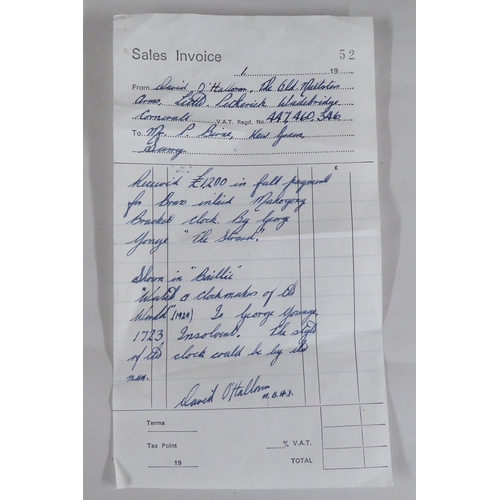 Sales Invoice 52
1 19
From David O'Halloran, The Old Malsters
Arms, Little Petherick Wadebridge
Cornwall V.A.T. Regd. No. 447,460,346
To Mr P. Kew Green
Surrey
£
Received £1200 in full payment
for Brass inlaid Mahogany
Bracket clock. By George
Yonge "The Strand."
Shown in "Baillie"
"Watch & clockmakers of the
World" (1929) Is George Younge,
1723, Insolvent. The style
of the clock could be by this
man.
David O'Halloran
Terms
Tax Point % V.A.T.
19 TOTAL